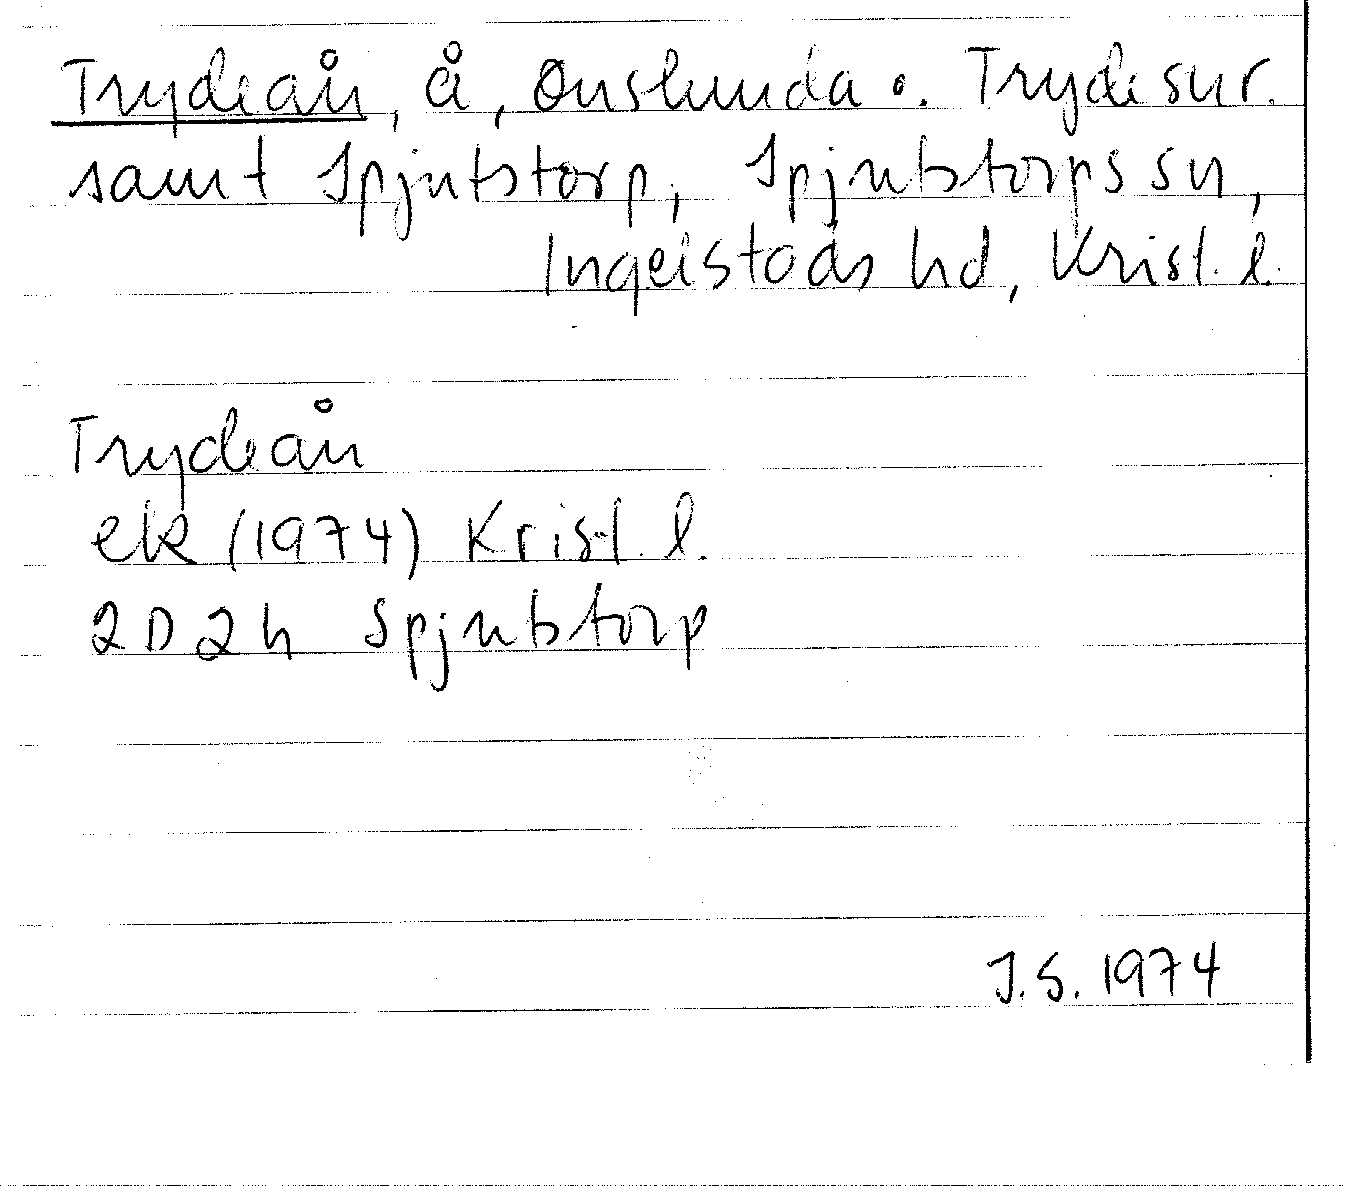 Trydeån, å, Onslunda o. Tryde snr.
samt Spjutstorp, Spjutstorps sn,
Ingelstads hd, Krist. l.
Trydeån
ek (1974) Krist. l.
2D2h Spjutstorp
J.S. 1974